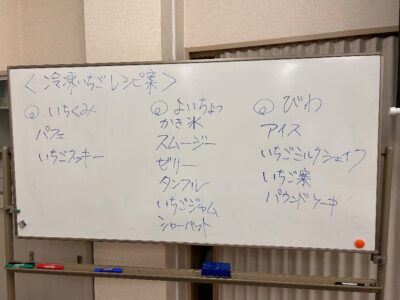 ＜冷凍いちごレシピ案＞
@ いちくみ
パフェ
いちごクッキー
@ よいちょっ
かき氷
スムージー
ゼリー
タンフル
いちごジャム
シャーベット
@ びわ
アイス
いちごミルクシェイク
いちご案
パウンドケーキ